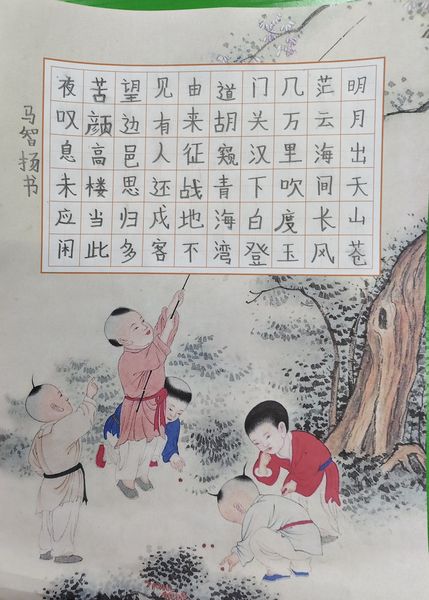 明月出天山苍
茫云海间长风
几万里吹度玉
门关汉下白登
道胡窥青海湾
由来征战地不
见有人还戍客
望边邑思归多
苦颜高楼当此
夜叹息未应闲
马智扬书